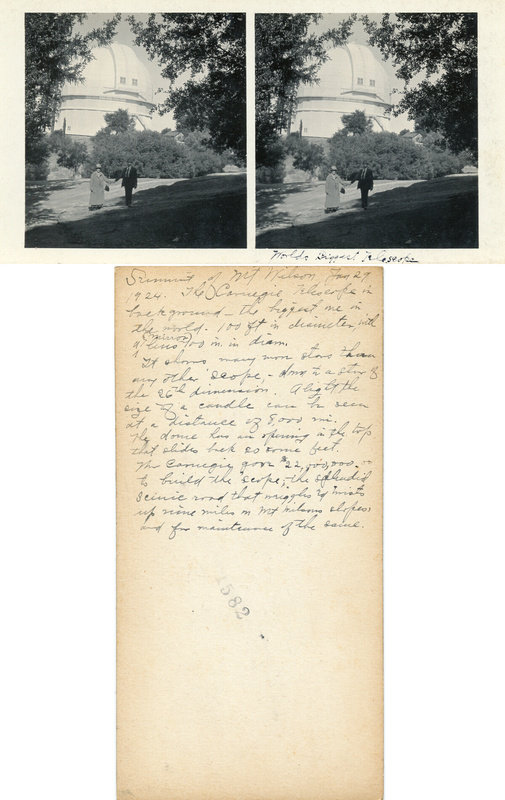 World's Biggest Telescope
Summit of Mt Wilson, Aug 29
1924. The Carnegie Telescope in
background - the biggest one in
the world. 100 ft in diameter, with
a (mirror) lens 100 in. in diam.
It shows many more stars than
any other 'scope, - down to a star of
the 26th dimension. A light the
size of a candle can be seen
at a distance of 5,000 mi.
The dome has an opening in the top
that slides back 20 some feet.
Mr Carnegie gave $22,000,000.00
to build the 'scope, - the splendid
scenic road that wiggles and twists
up nine miles on Mt Wilsons slopes
and for maintenance of the same.
582